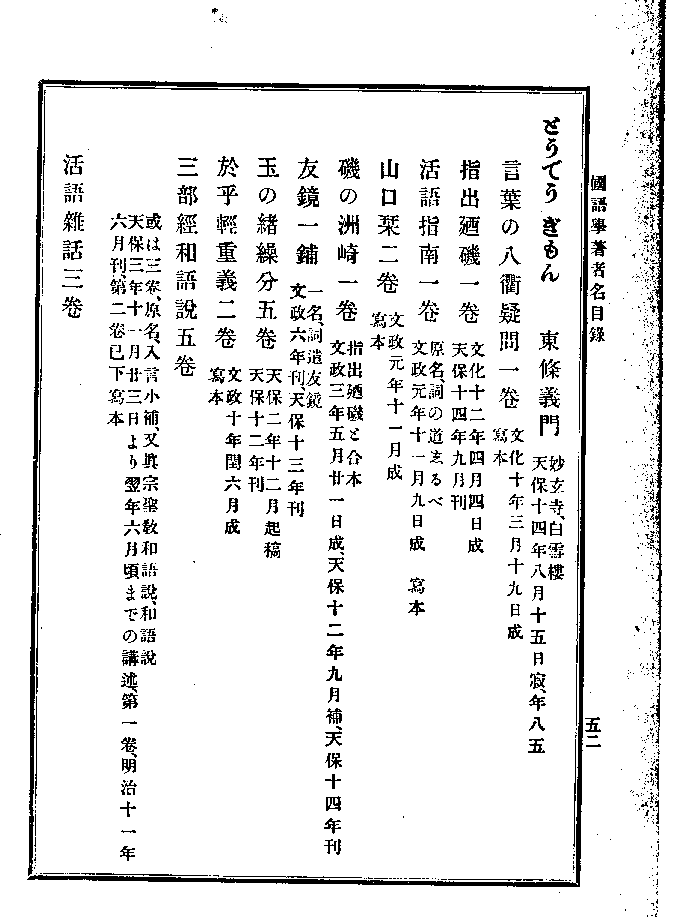 國語學著者名目錄
五二
とうでう ぎもん 東條義門
妙玄寺、白雪樓
天保十四年八月十五日寂、年八五
言葉の八衢疑問一卷
文化十年三月十九日成
寫本
指出廼磯一卷
文化十二年四月四日成
天保十四年九月刊
活語指南一卷
原名、詞の道しるべ
文政元年十一月九日成 寫本
山口栞二卷
文政元年十一月成
寫本
磯の洲崎一卷
指出廼磯と合本
文政三年五月廿一日成、天保十二年九月補、天保十四年刊
友鏡一鋪
一名、詞遣友鏡
文政六年刊天保十三年刊
玉の緒繰分五卷
天保二年十二月起稿
天保十二年刊
於乎輕重義二卷
文政十年閏六月成
寫本
三部經和語說五卷
或は三卷、原名、入言小補、又眞宗聖敎和語說、和語說
天保三年十一月廿三日より翌年六月頃までの講述、第一卷、明治十一年
六月刊、第二卷已下寫本
活語雜話三卷